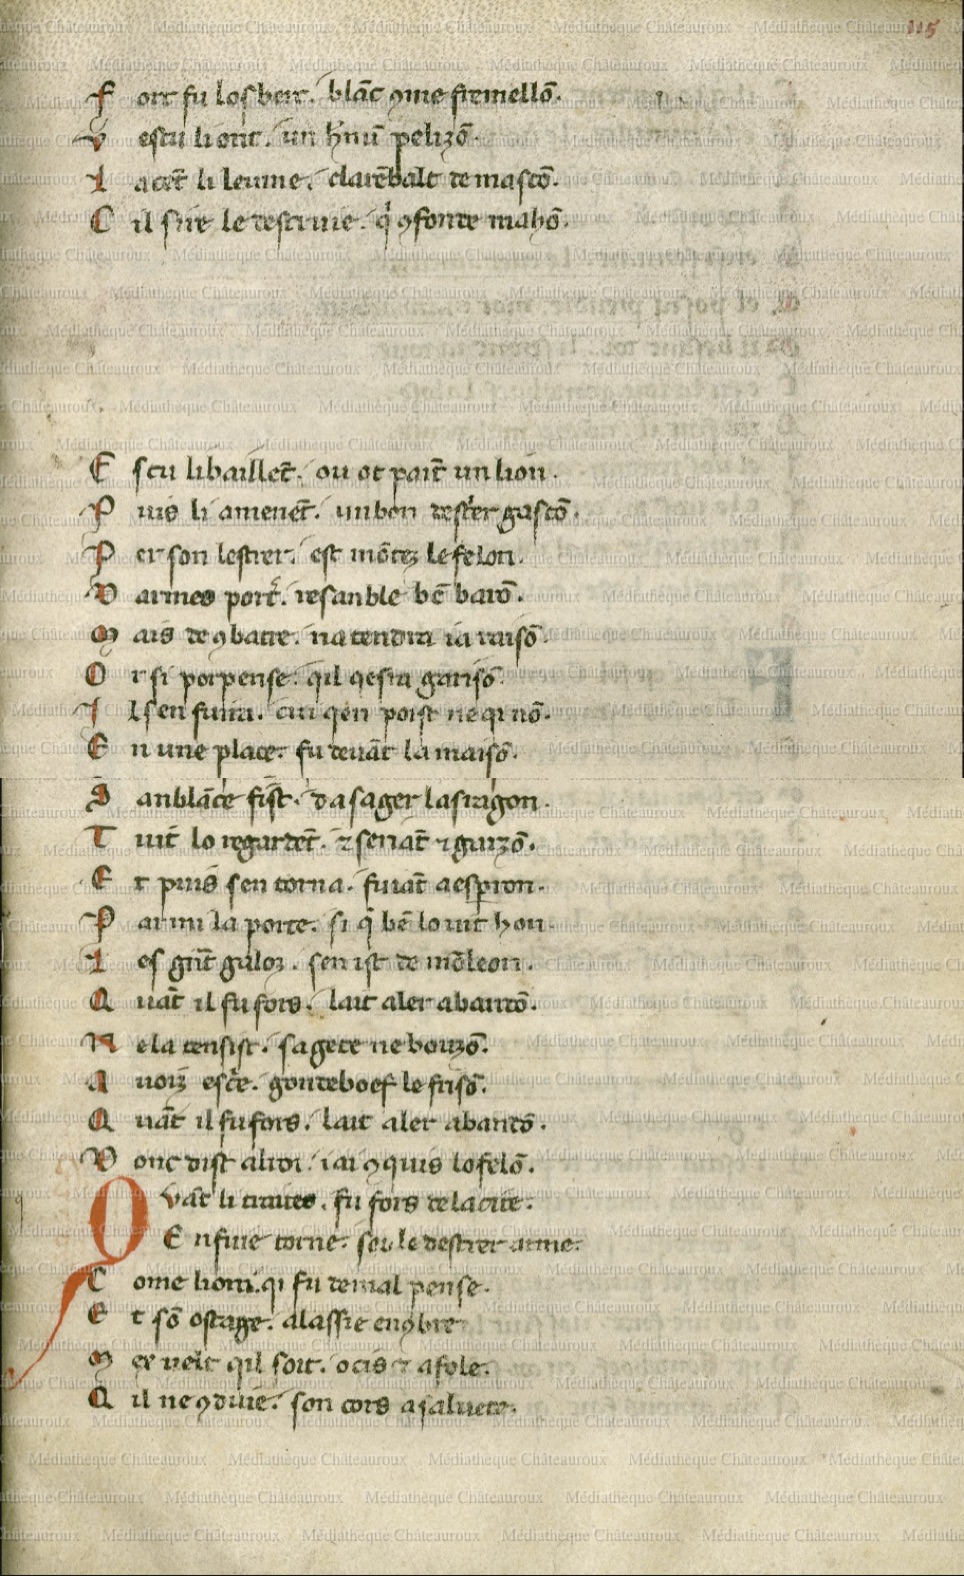 115
F ort fu losberc. blāc ꝯme firmellō.
V estu li ont. un h'mū pelizō.
L acēt li leume. clarēbalt de mascō.
C il sire le destruie. qͥ ꝯfonde mahō.
E scu li baillēt. ou ot paīt un lion.
P uis li amenēt. un bon dest'er gascō.
P er son lestrer. est mōtez le felon.
D armes port'. resanble bē barō.
M ais de ꝯbatre. na tendra ia raisō.
O r si porpense. qil qesra garisō.
I l sen fuira. cui qen poist ne qi nō.
E n une place. fu deuāt la maisō.
S anblāce fist. da sager lasragon.
T uit lo regardēt. ⁊ seriāt ⁊ garzō.
E t puis sen torna. fuiāt a espiron.
P ar mi la porte. si qͥ bē lo uit hon.
L es grāt galoz. sen ist de mōleon.
Q uāt il fu fors. lait aler abantō.
N e la tensist. sagete ne bouzō.
A uoiz escͥe. gondeboef le frisō.
Q uāt il fu fors. lait aler abantō.
D onc dist alidi. iai ꝯquis lo felō.
Q vāt li traites. fu fors de la cite.
E n fuie torne. sor le destrer arme.
C ome hom. qi fu de mal pense.
E t sō ostage. a lassie enꝯbre
M ex uelt qil soit. ocis ⁊ afole.
Q il ne ꝯduie. son cors a saluete.